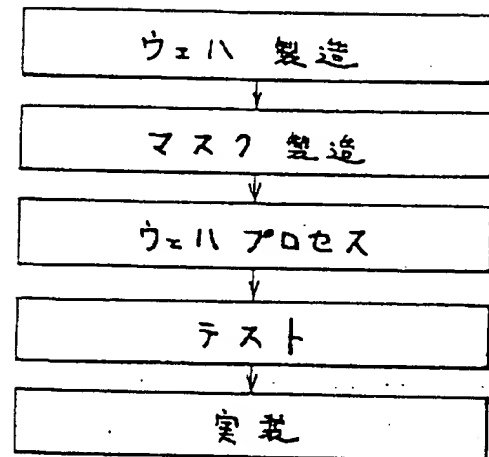 ウェハ 製造
マスク 製造
ウェハ プロセス
テスト
実装